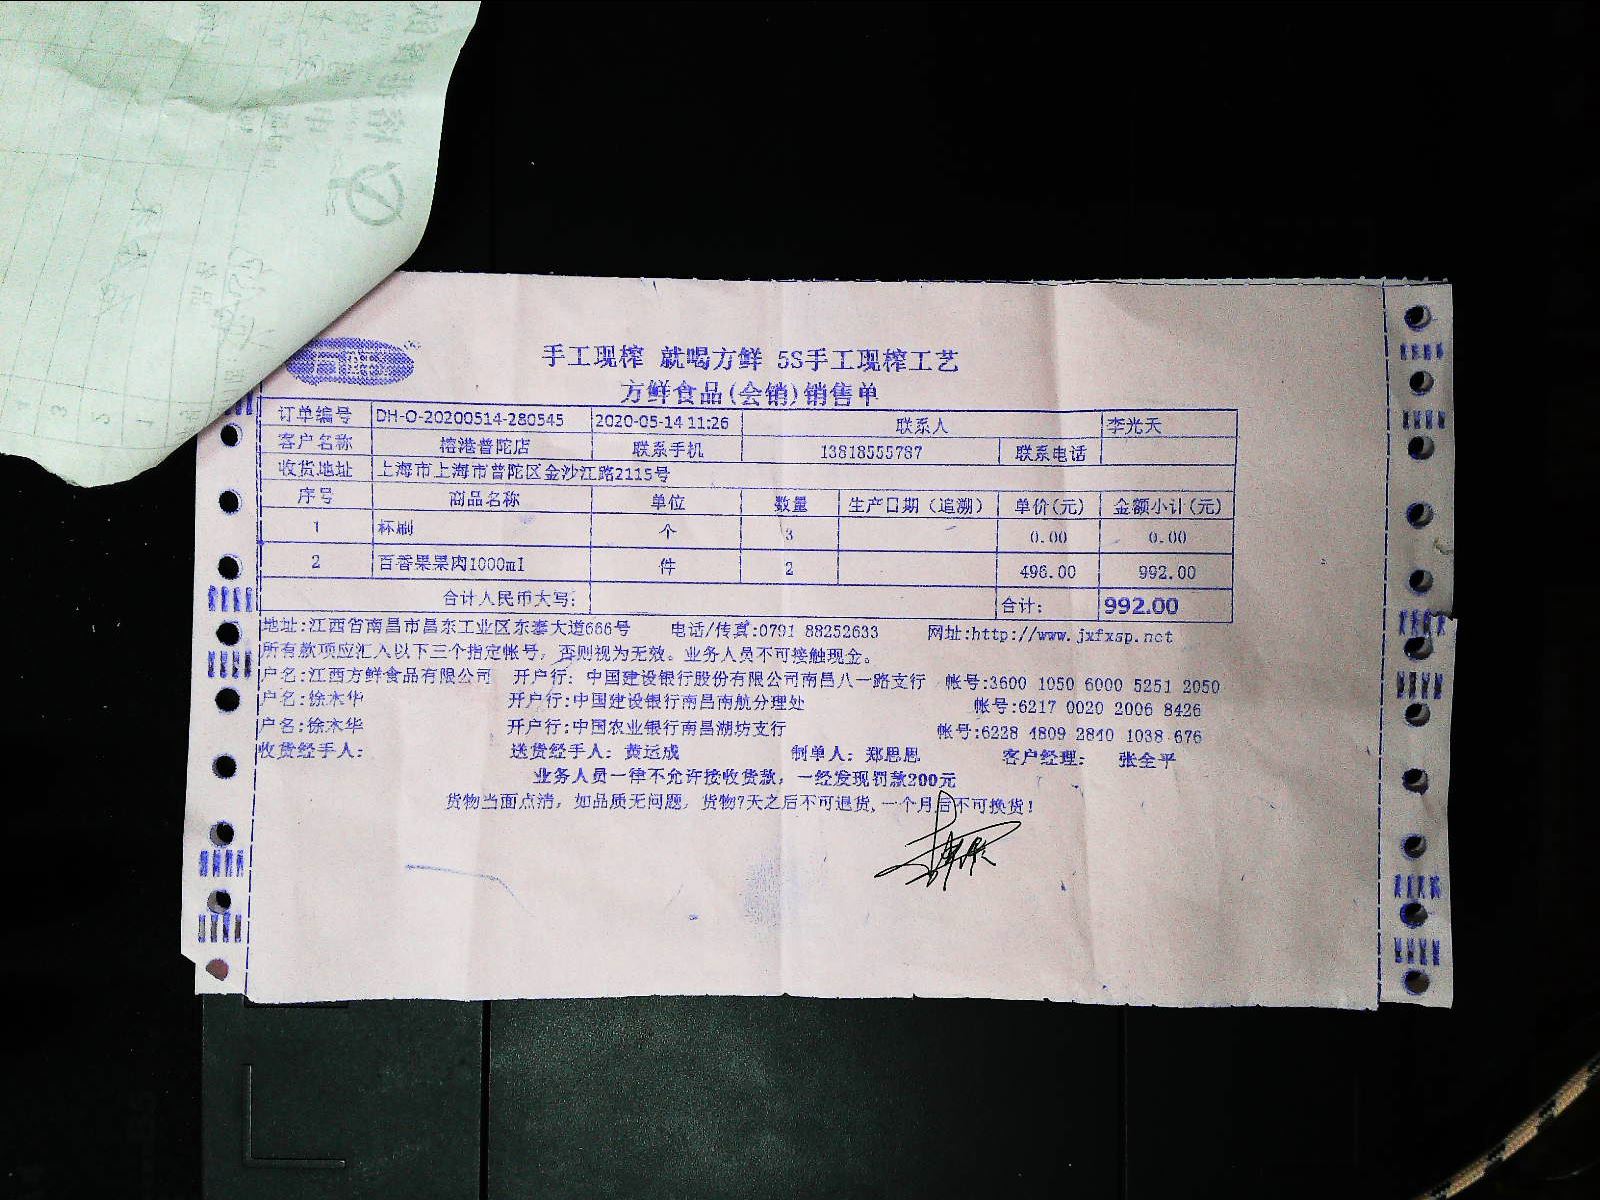 方鲜
手工现榨 就喝方鲜 5S手工现榨工艺
方鲜食品(会销)销售单
订单编号 DH-O-20200514-280545 2020-05-14 11:26 联系人 李光天
客户名称 榕港普陀店 联系手机 13818555787 联系电话
收货地址 上海市上海市普陀区金沙江路2115号
序号 商品名称 单位 数量 生产日期（追溯） 单价(元) 金额小计(元)
1 杯刷 个 3 0.00 0.00
2 百香果果肉1000ml 件 2 496.00 992.00
合计人民币大写: 合计: 992.00
地址:江西省南昌市昌东工业区东泰大道666号 电话/传真:0791 88252633 网址:http://www.jxfxsp.net
所有款项应汇入以下三个指定帐号，否则视为无效。业务人员不可接触现金。
户名:江西方鲜食品有限公司 开户行: 中国建设银行股份有限公司南昌八一路支行 帐号:3600 1050 6000 5251 2050
户名:徐木华 开户行:中国建设银行南昌南航分理处 帐号:6217 0020 2006 8426
户名:徐木华 开户行:中国农业银行南昌湖坊支行 帐号:6228 4809 2840 1038 676
收货经手人: 送货经手人: 黄运成 制单人: 郑思思 客户经理: 张全平
业务人员一律不允许接收货款，一经发现罚款200元
货物当面点清，如品质无问题，货物7天之后不可退货,一个月后不可换货!